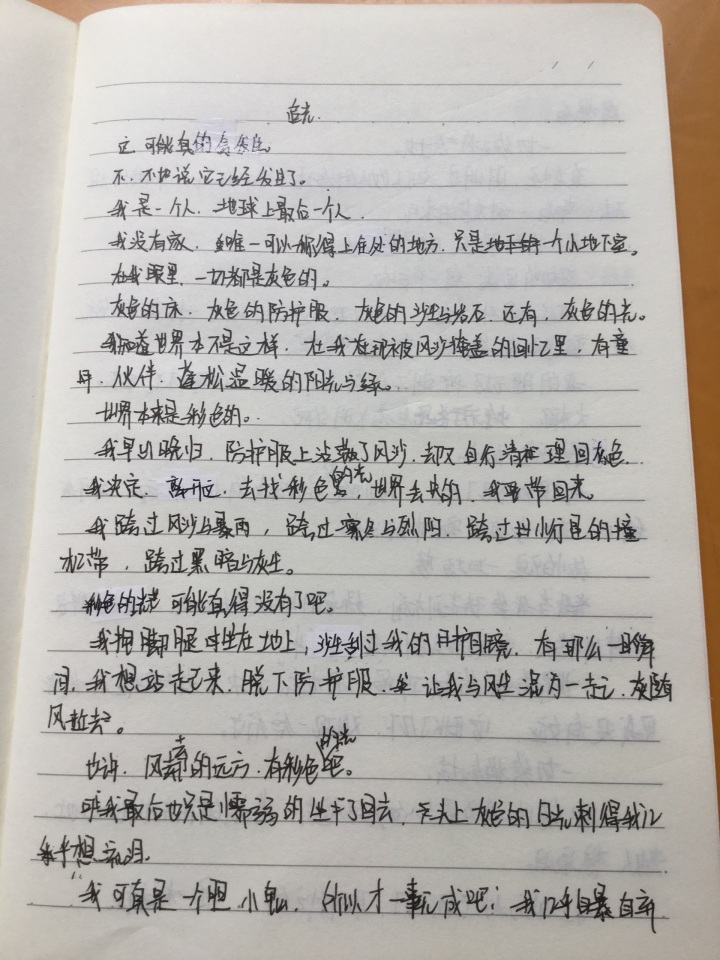 追光.
它可能真的会发生。
不，不如说它已经发生了。
我是一个人，地球上最后一个人，
我没有家，唯一可以称得上住处的地方，只是一个小地下室。
在我眼里，一切都是灰色的。
灰色的床，灰色的防护服，灰色的沙尘与岩石，还有，灰色的光。
我知道世界本不是这样，在我被风沙掩盖的回忆里，有童
年，伙伴，蓬松温暖的阳光与绿。
世界本来是彩色的。
我早出晚归，防护服上沾了风沙，却又自行清理回灰色。
我决定，离开，去找彩色的光，世界丢失的，我要带回来。
我跨过风沙与暴雨，跨过寒冬与烈阳，跨过小行星的撞
击带，跨过黑暗与灰尘。
彩色的光可能真得没有了吧。
我抱脚腿坐在地上，沙尘刮过我的护目镜，有那么一瞬
间，我想站起来，脱下防护服，让我与风尘混为一起，灰随
风散去。
也许，风暴的远方，有彩色的光吧。
我最后也只是懦弱的坐了回去，头上灰色的日光刺得我几
乎想流泪。
“我可真是一个胆小鬼，所以才一事无成吧”我几乎自暴自弃